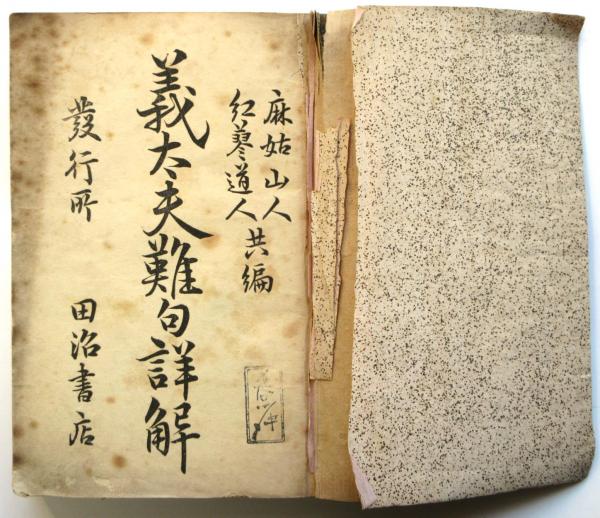 麻姑山人
紅蓼道人 共編
義太夫難句詳解
發行所 田沼書店